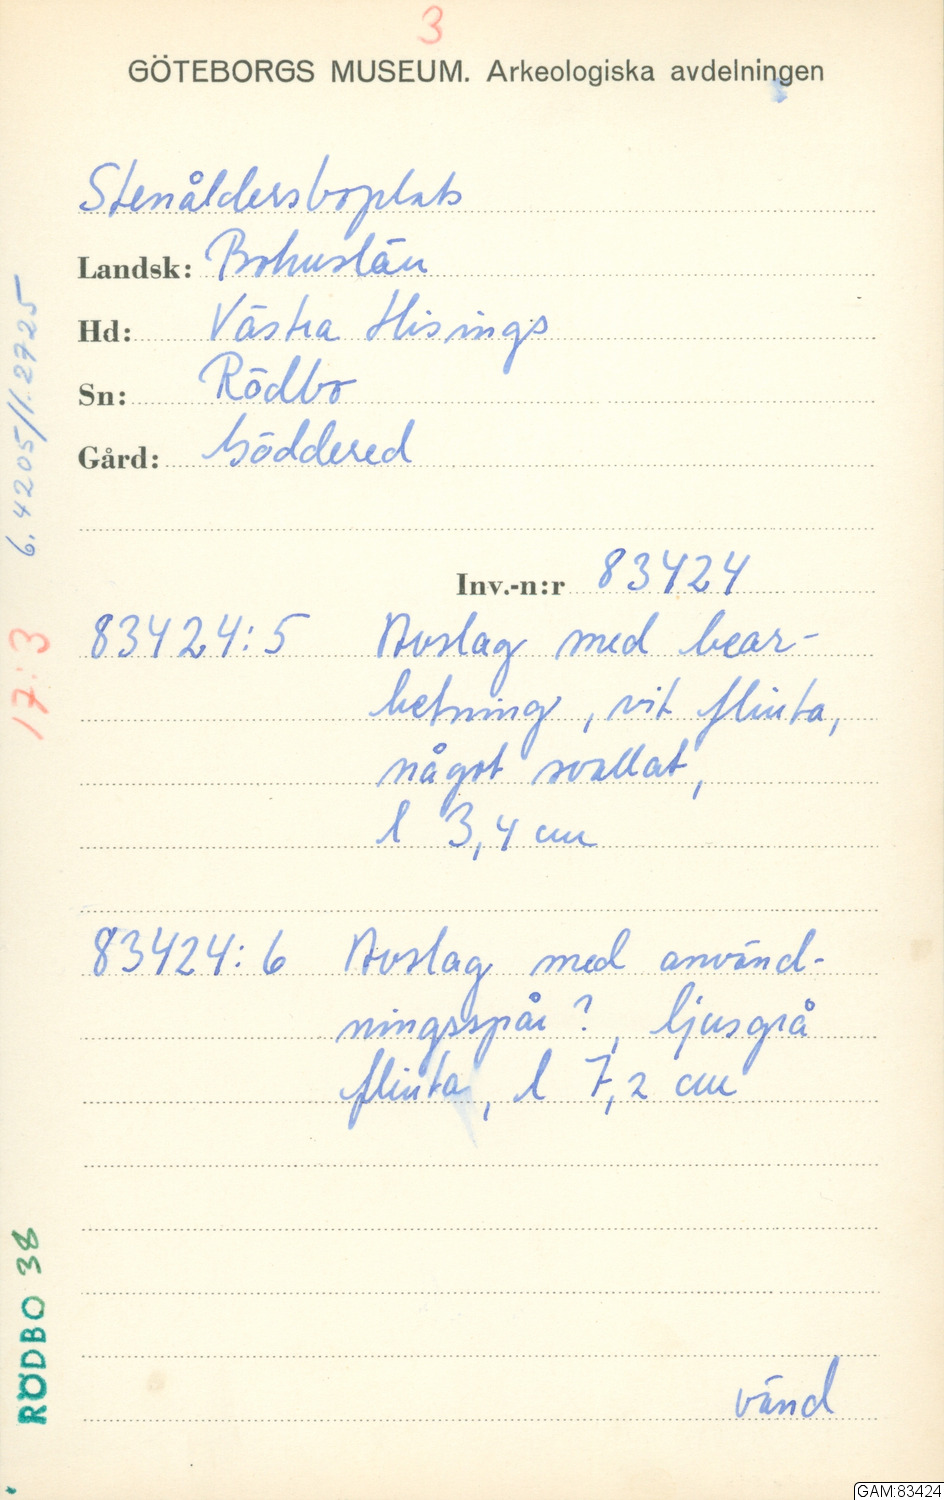 3
GÖTEBORGS MUSEUM. Arkeologiska avdelningen
Stenåldersboplats
Landsk: Bohuslän
Hd: Västra Hisings
Sn: Rödbo
Gård: Göddered
Inv.-n:r 83424
83424:5 Avslag med bear-
betning, vit flinta,
något svallat,
l 3,4 cm
83424:6 Avslag med använd-
ningsspår?, ljusgrå
flinta, l 7,2 cm
vänd
6.4205/1.2725
17:3
RÖDBO 38
GAM:83424